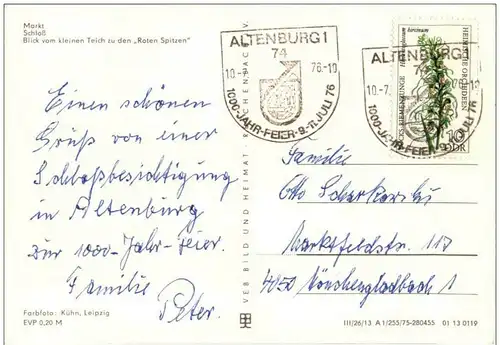 Markt
Schloß
Blick vom kleinen Teich zu den „Roten Spitzen"
Einen schönen
Gruß von einer
Schloßbesichtigung
in Altenburg
zur 1000-Jahr-Feier.
Familie
Peter.
Farbfoto: Kühn, Leipzig
EVP 0,20 M
VEB BILD UND HEIMAT REICHENBACH I. V.
ALTENBURG 1
74
10.-7. 76.-10
1000-JAHR-FEIER·9.-11. JULI 76
ALTENBURG 1
10.-7. 76-10
1000-JAHR-FEIER·9.-11. JULI 76
Himantoglossum hircinum
HEIMISCHE ORCHIDEEN
BOCKS-RIEMENZUNGE
10
DDR
Familie
Otto
Marktfeldstr. 117
4050 Mönchengladbach 1
III/26/13 A 1/255/75-280455 01 13 0119